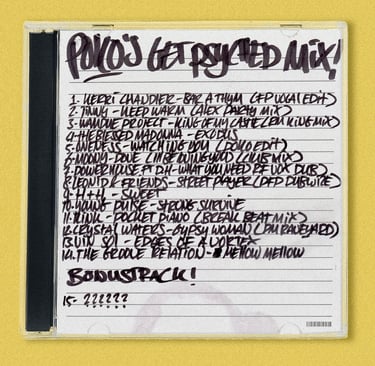 POKO'S GET PSYCHED MIX!
1- KERRI CHANDLER - BAR A THYM (FP VOCAL EDIT)
2- JINNY - KEEP WARM (ALEX PARTY MIX)
3- WAMDUE PROJECT - KING OF MY CASTLE
4- THE BLESSED MADONNA - EXODUS
5- - WATCHING YOU (POKO EDIT)
6- MOODY - DOVE (I'M BE DOING YOU) (CLUB MIX)
7- POWERHOUSE FT D.H - WHAT YOU NEED (VOX DUB)
8- & FRIENDS - STREET PLAYER
9- H+H - SWEET
10- YOUNG PULSE - STRONG SURVIVE
11- - POCKET PIANO (BREAK BEAT MIX)
12- CRYSTAL WATERS - GYPSY WOMAN
13- VIN SOL - EDGES OF A VORTEX
14. THE GROOVE RELATION - MELLOW MELLOW
BONUSTRACK!
15- ??????